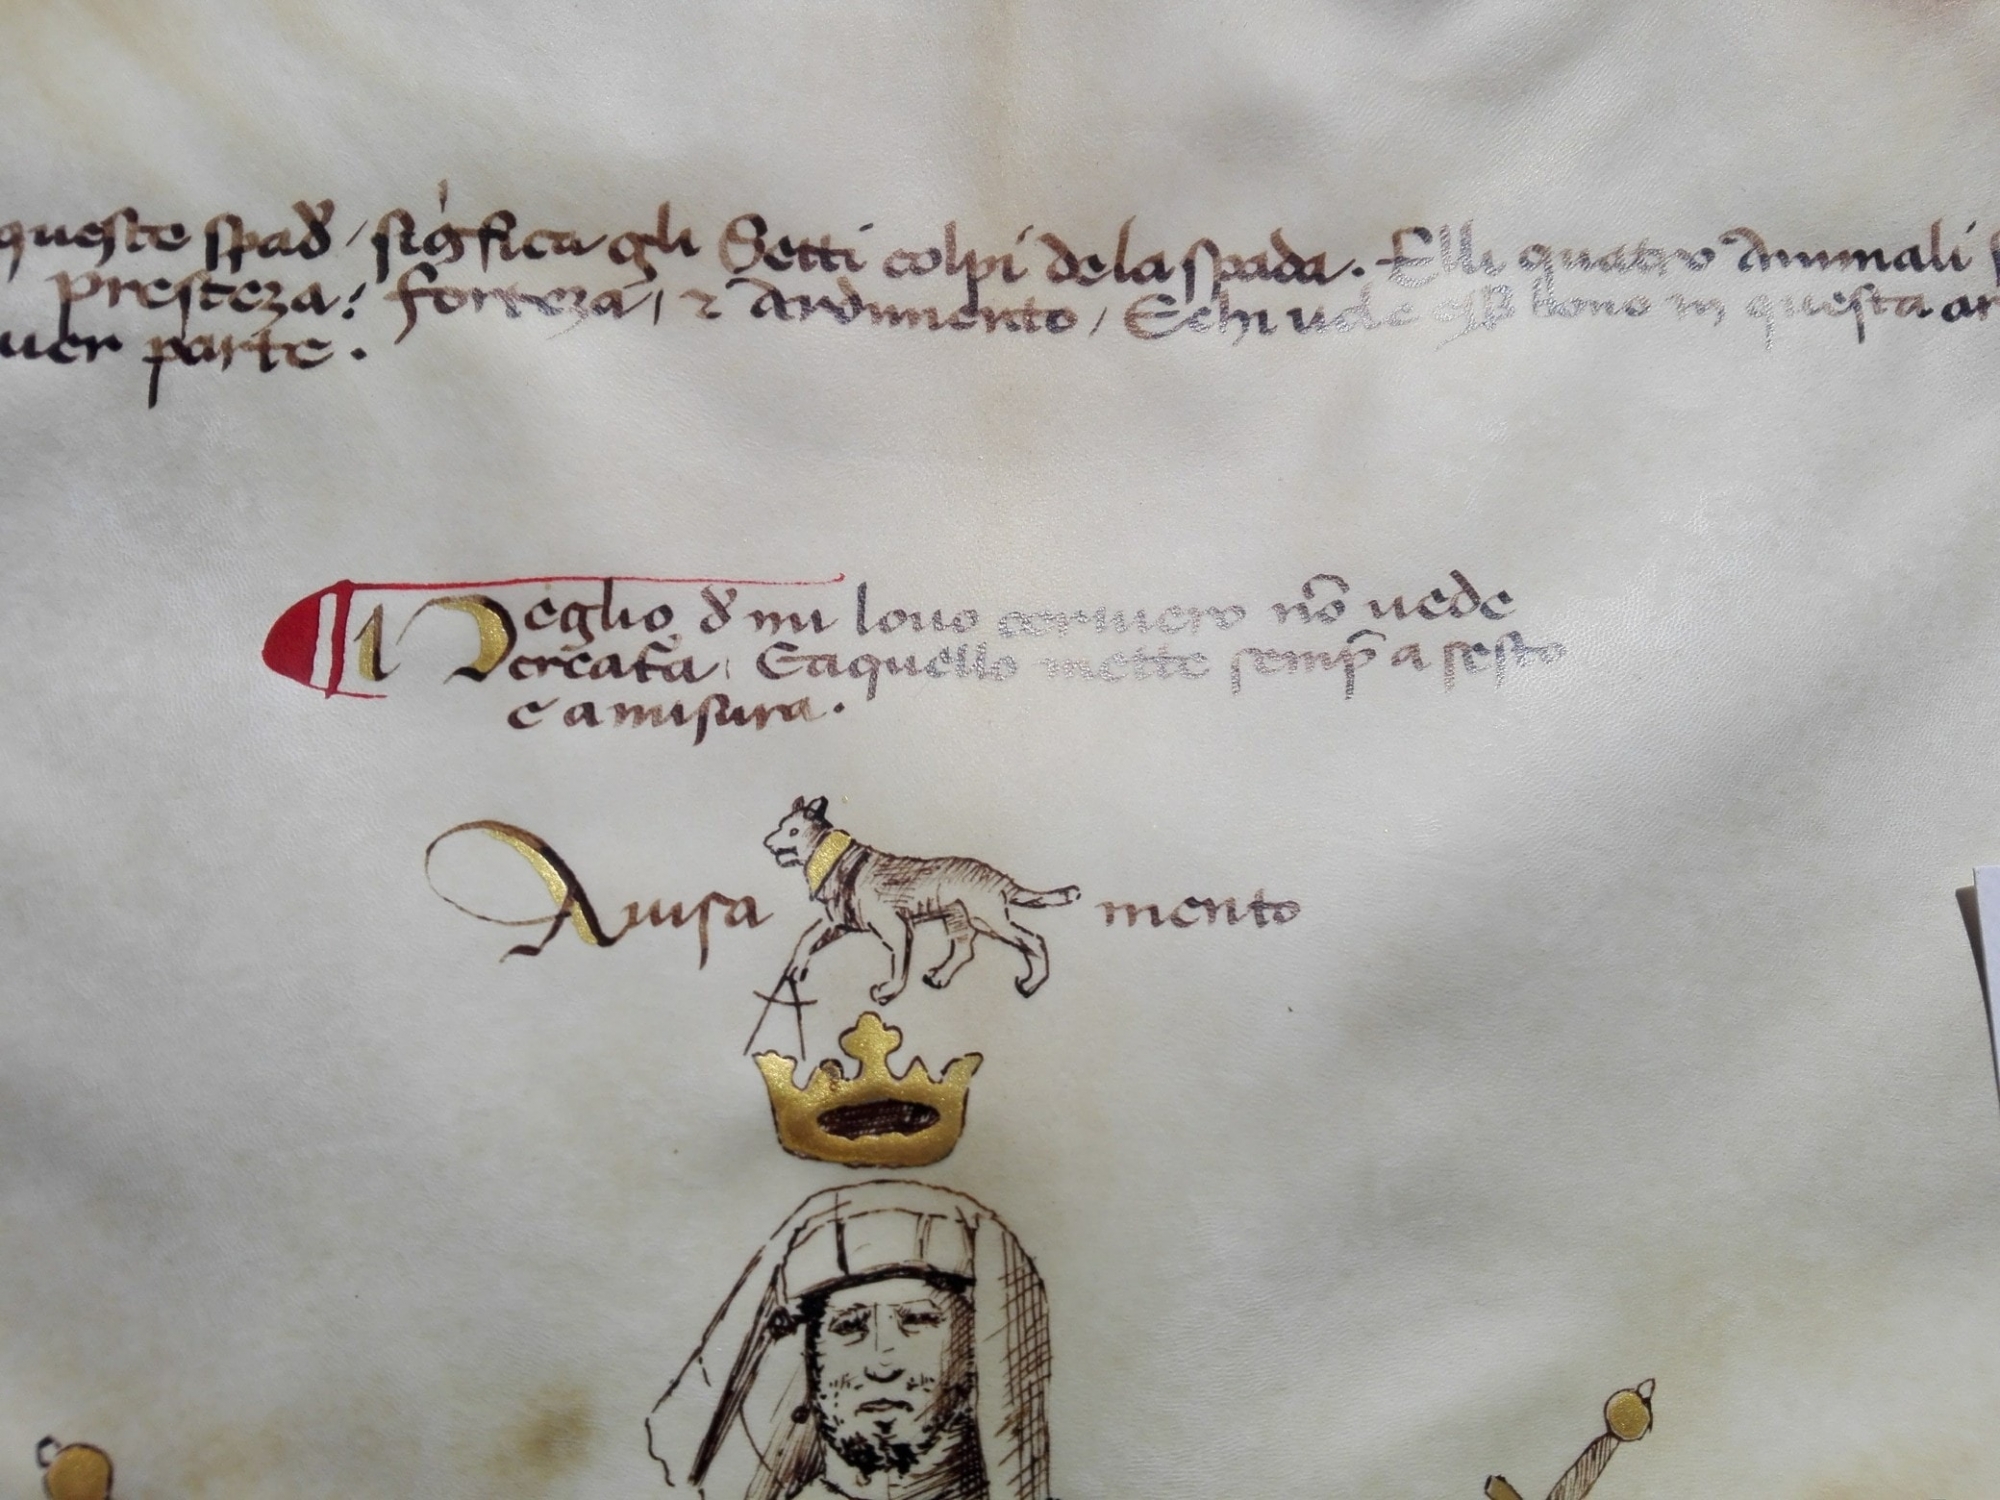 queste spad sig'fica gli Setti colpi dela spada. Elli quatro Animali
presteza: forteza, 2 Ardimento, Echi vole bono in questa ar
uer parte.
Meglio d mi louo cerviero nō uede
creatã, Eaquello mette semp̄ a sesto
e a misura.
Auisa mento